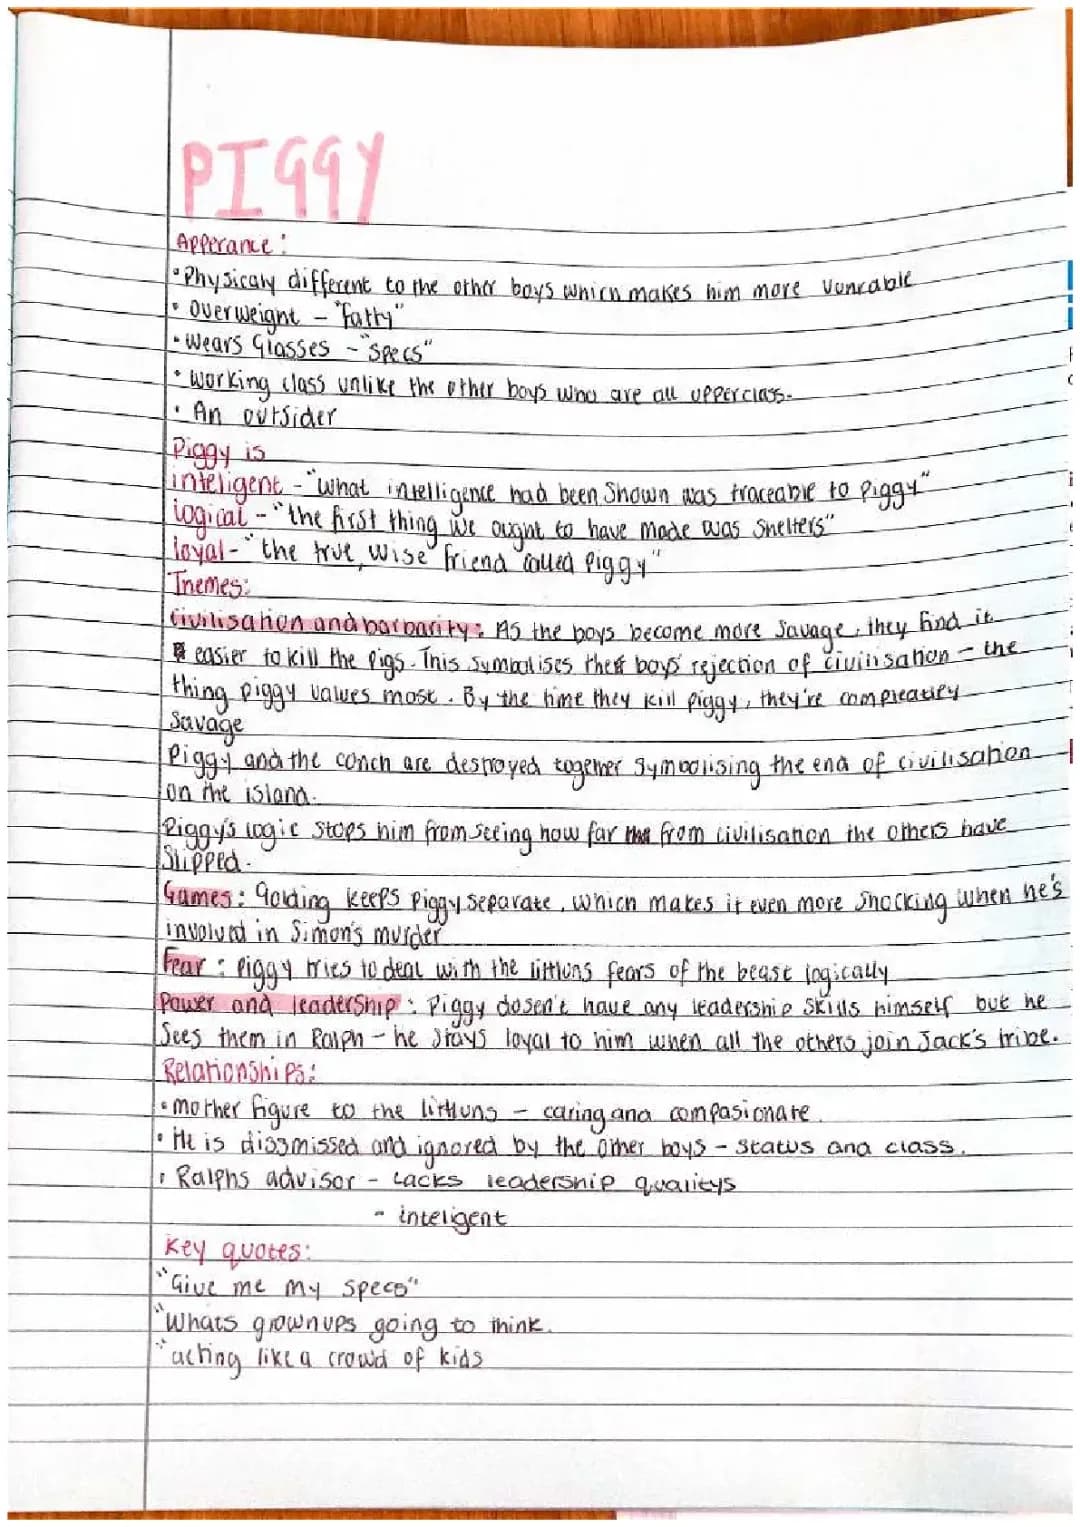 PIGGY
Apperance:
• Physicaly different to the other boys which makes him more vunrable
• Overweight - "fatty"
• Wears Glasses - "specs"
• Working class unlike the other boys who are all upperclass.
• An outsider
Piggy is
inteligent - "what intelligence had been shown was traceable to Piggy"
logical - "the first thing we ought to have made was shelters"
loyal - "the true, wise friend called Piggy"
Themes:
Civilisation and barbarity: As the boys become more savage, they find it
easier to kill the pigs. This symbolises the boys' rejection of civilisation - the
thing piggy values most. By the time they kill piggy, they're compleatley
savage
Piggy and the conch are destroyed together symbolising the end of civilisation
on the island.
Piggy's logic stops him from seeing how far from civilisation the others have
slipped.
Games: Golding keeps piggy separate, which makes it even more shocking when he's
involved in Simon's murder
Fear: Piggy tries to deal with the littluns fears of the beast logically
Power and leadership: Piggy dosen't have any leadership skills himself but he
sees them in Ralph - he stays loyal to him when all the others join Jack's tribe.
Relationships:
• mother figure to the littluns - caring and compasionate.
• He is dissmissed and ignored by the other boys - status and class.
• Ralphs advisor - Lacks leadership qualitys
- inteligent
Key quotes:
"Give me my specs"
"Whats grownups going to think.
"acting like a crowd of kids